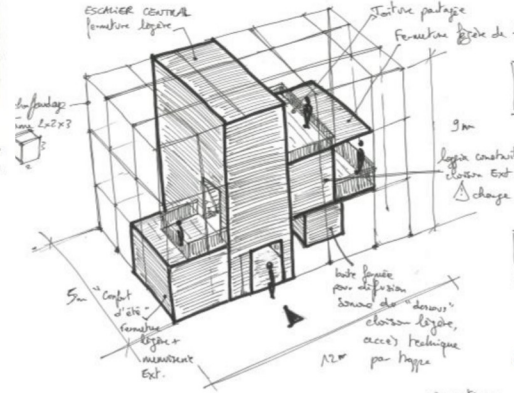 ESCALIER CENTRAL
fermeture légère
Toiture partagée
Fermeture légère de
2x2x3
3
9m
loggia
cloison Ext
change
5m
"Confort
d'été"
Fermeture
légère +
menuiserie
Ext.
12m
boite
pour diffusion
sonore de "dessous"
cloison légère,
accès technique
par trappe